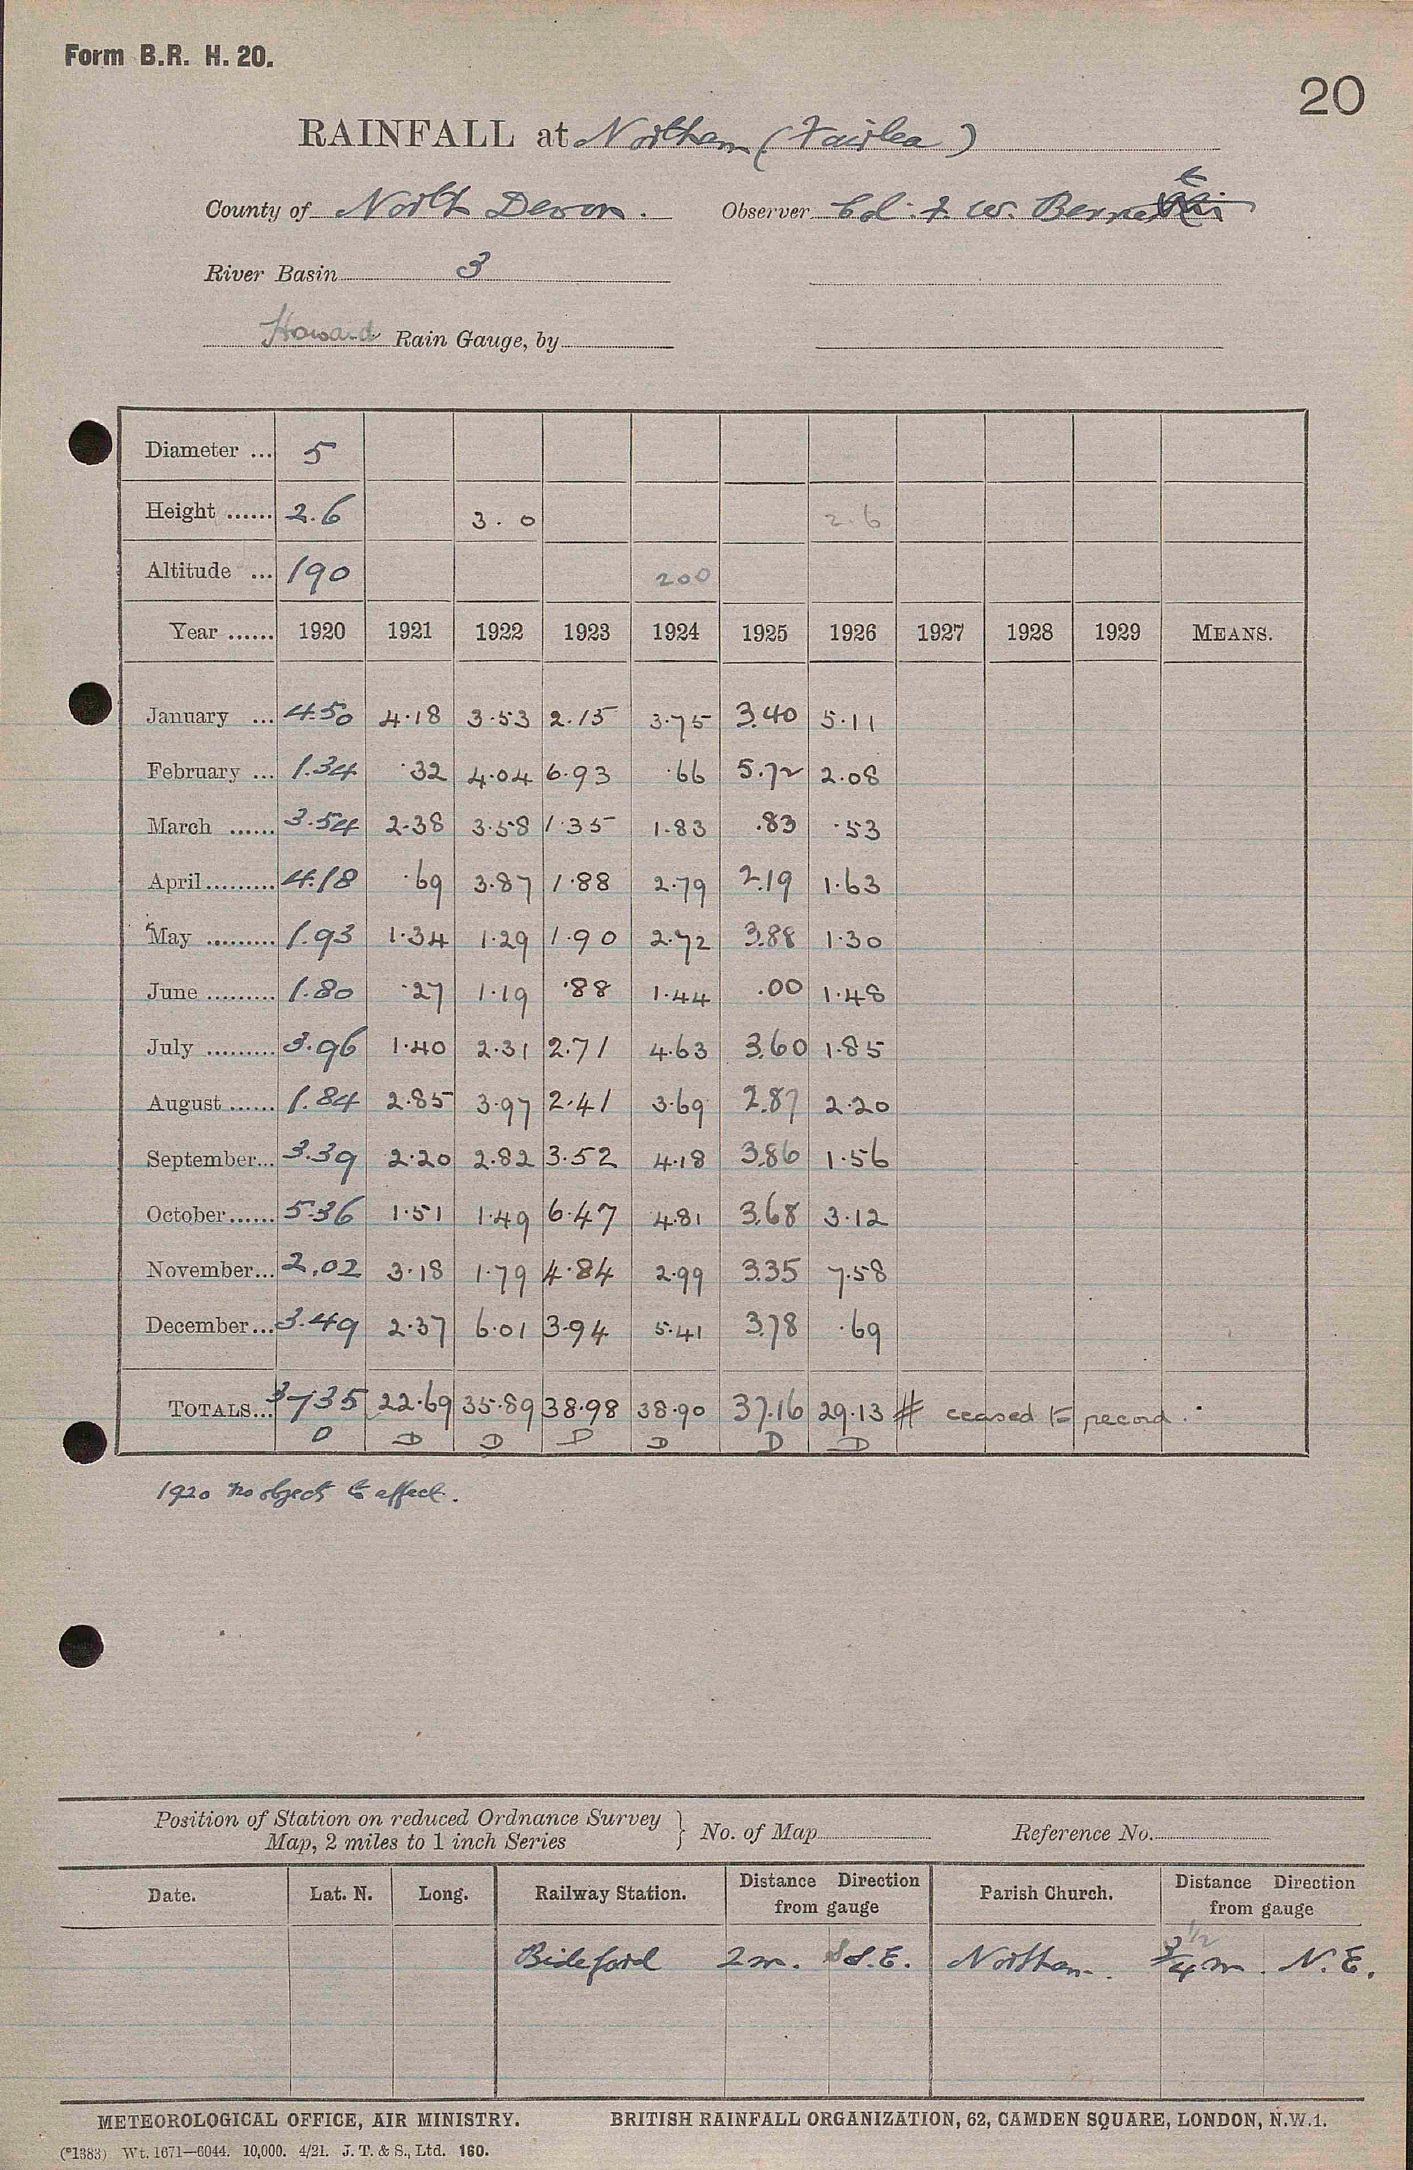 Form B.R. H. 20.
20
RAINFALL at Northam (Fairlea)
County of North Devon. Observer Col. F. W. Bennett
River Basin 3
Howard Rain Gauge, by
Diameter ... 5
Height ...... 2.6 3.0 2.6
Altitude ... 190 200
Year ...... 1920 1921 1922 1923 1924 1925 1926 1927 1928 1929 MEANS.
January ... 4.50 4.18 3.53 2.15 3.75 3.40 5.11
February ... 1.34 .32 4.04 6.93 .66 5.72 2.08
March ...... 3.54 2.38 3.58 1.35 1.83 .83 .53
April ......... 4.18 .69 3.87 1.88 2.79 2.19 1.63
May ......... 1.93 1.34 1.29 1.90 2.72 3.88 1.30
June ......... 1.80 .27 1.19 .88 1.44 .00 1.48
July ......... 3.96 1.40 2.31 2.71 4.63 3.60 1.85
August ...... 1.84 2.85 3.97 2.41 3.69 2.87 2.20
September... 3.39 2.20 2.82 3.52 4.18 3.86 1.56
October...... 5.36 1.51 1.49 6.47 4.81 3.68 3.12
November... 2.02 3.18 1.79 4.84 2.99 3.35 7.58
December... 3.49 2.37 6.01 3.94 5.41 3.78 .69
TOTALS... 37.35 22.69 35.89 38.98 38.90 37.16 29.13 # ceased to record.
D D D D D D D
1920 No objects to affect.
Position of Station on reduced Ordnance Survey
Map, 2 miles to 1 inch Series } No. of Map Reference No.
Date. Lat. N. Long. Railway Station. Distance Direction from gauge Parish Church. Distance Direction from gauge
1/2
Bideford 2 m. S S.E. Northam. 3/4 m. N.E.
METEOROLOGICAL OFFICE, AIR MINISTRY. BRITISH RAINFALL ORGANIZATION, 62, CAMDEN SQUARE, LONDON, N.W.1.
(*1383) Wt. 1671—6044. 10,000. 4/21. J. T. & S., Ltd. 160.